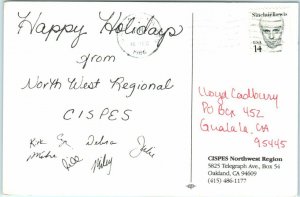 Happy Holidays
from
North West Regional
CISPES
Debra Julie
Sinclair Lewis
USA
14
Lloyd Cadbury
PO Box 452
Gualala, CA
95445
CISPES Northwest Region
5825 Telegraph Ave., Box 54
Oakland, CA 94609
(415) 486-1177